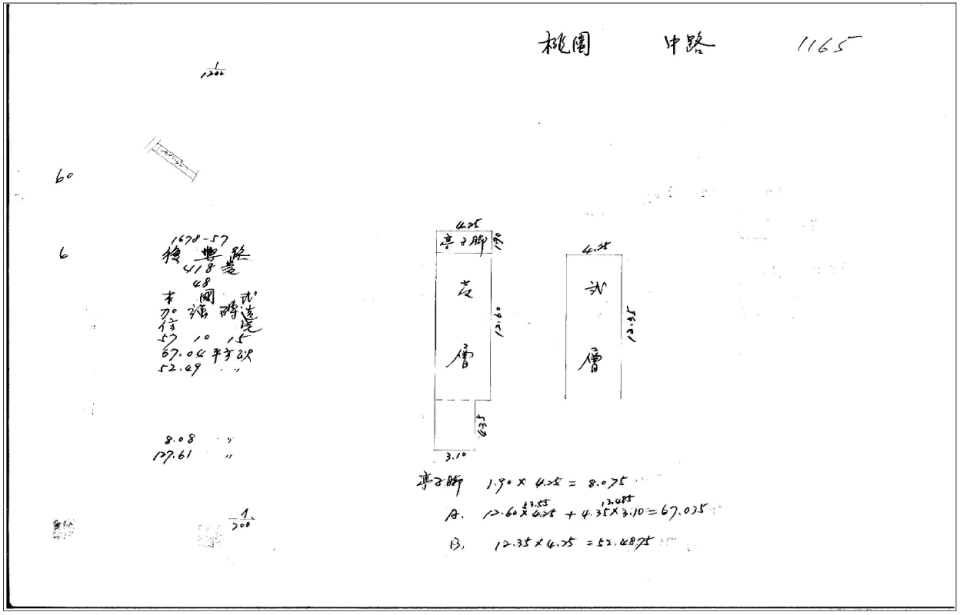 桃園 中路 1165
1/1200
60
6
1678-57
復興路
418壹
48
本國式
加強磚造
住宅
57 10 15
67.04 平方公尺
52.49 〃
8.08 〃
127.61 〃
1/200
4.25
亭子脚 1.90
壹層
12.60
4.35
3.10
4.25
弍層
12.35
亭子脚 1.90 × 4.25 = 8.075
53.55 13.485
A. 12.60 × 4.25 + 4.35 × 3.10 = 67.035
B. 12.35 × 4.25 = 52.4875